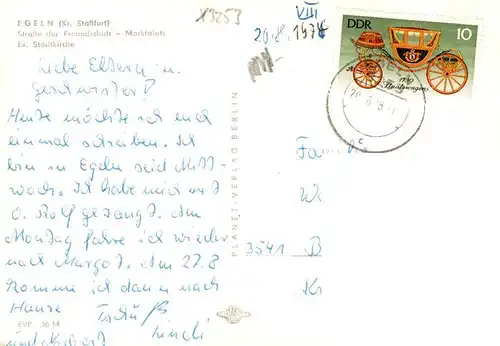 EGELN (Kr. Staßfurt)
Straße der Freundschaft – Marktplatz
Ev. Stadtkirche
X3253
VIII
20.8.1978
DDR
10
1790
Staatswagen
PLANET-VERLAG BERLIN
Liebe Eltern u.
Geschwister!
Heute möchte ich euch
einmal schreiben. Ich
bin in Egeln seid Mitt-
woch. Ich habe mich mit
O. Rolf gezangt. Am
Montag fahre ich wieder
nach Margot. Am 27.8
komme ich dann nach
Hause
Tschüß
EVP
Fam
3541 B
Kr